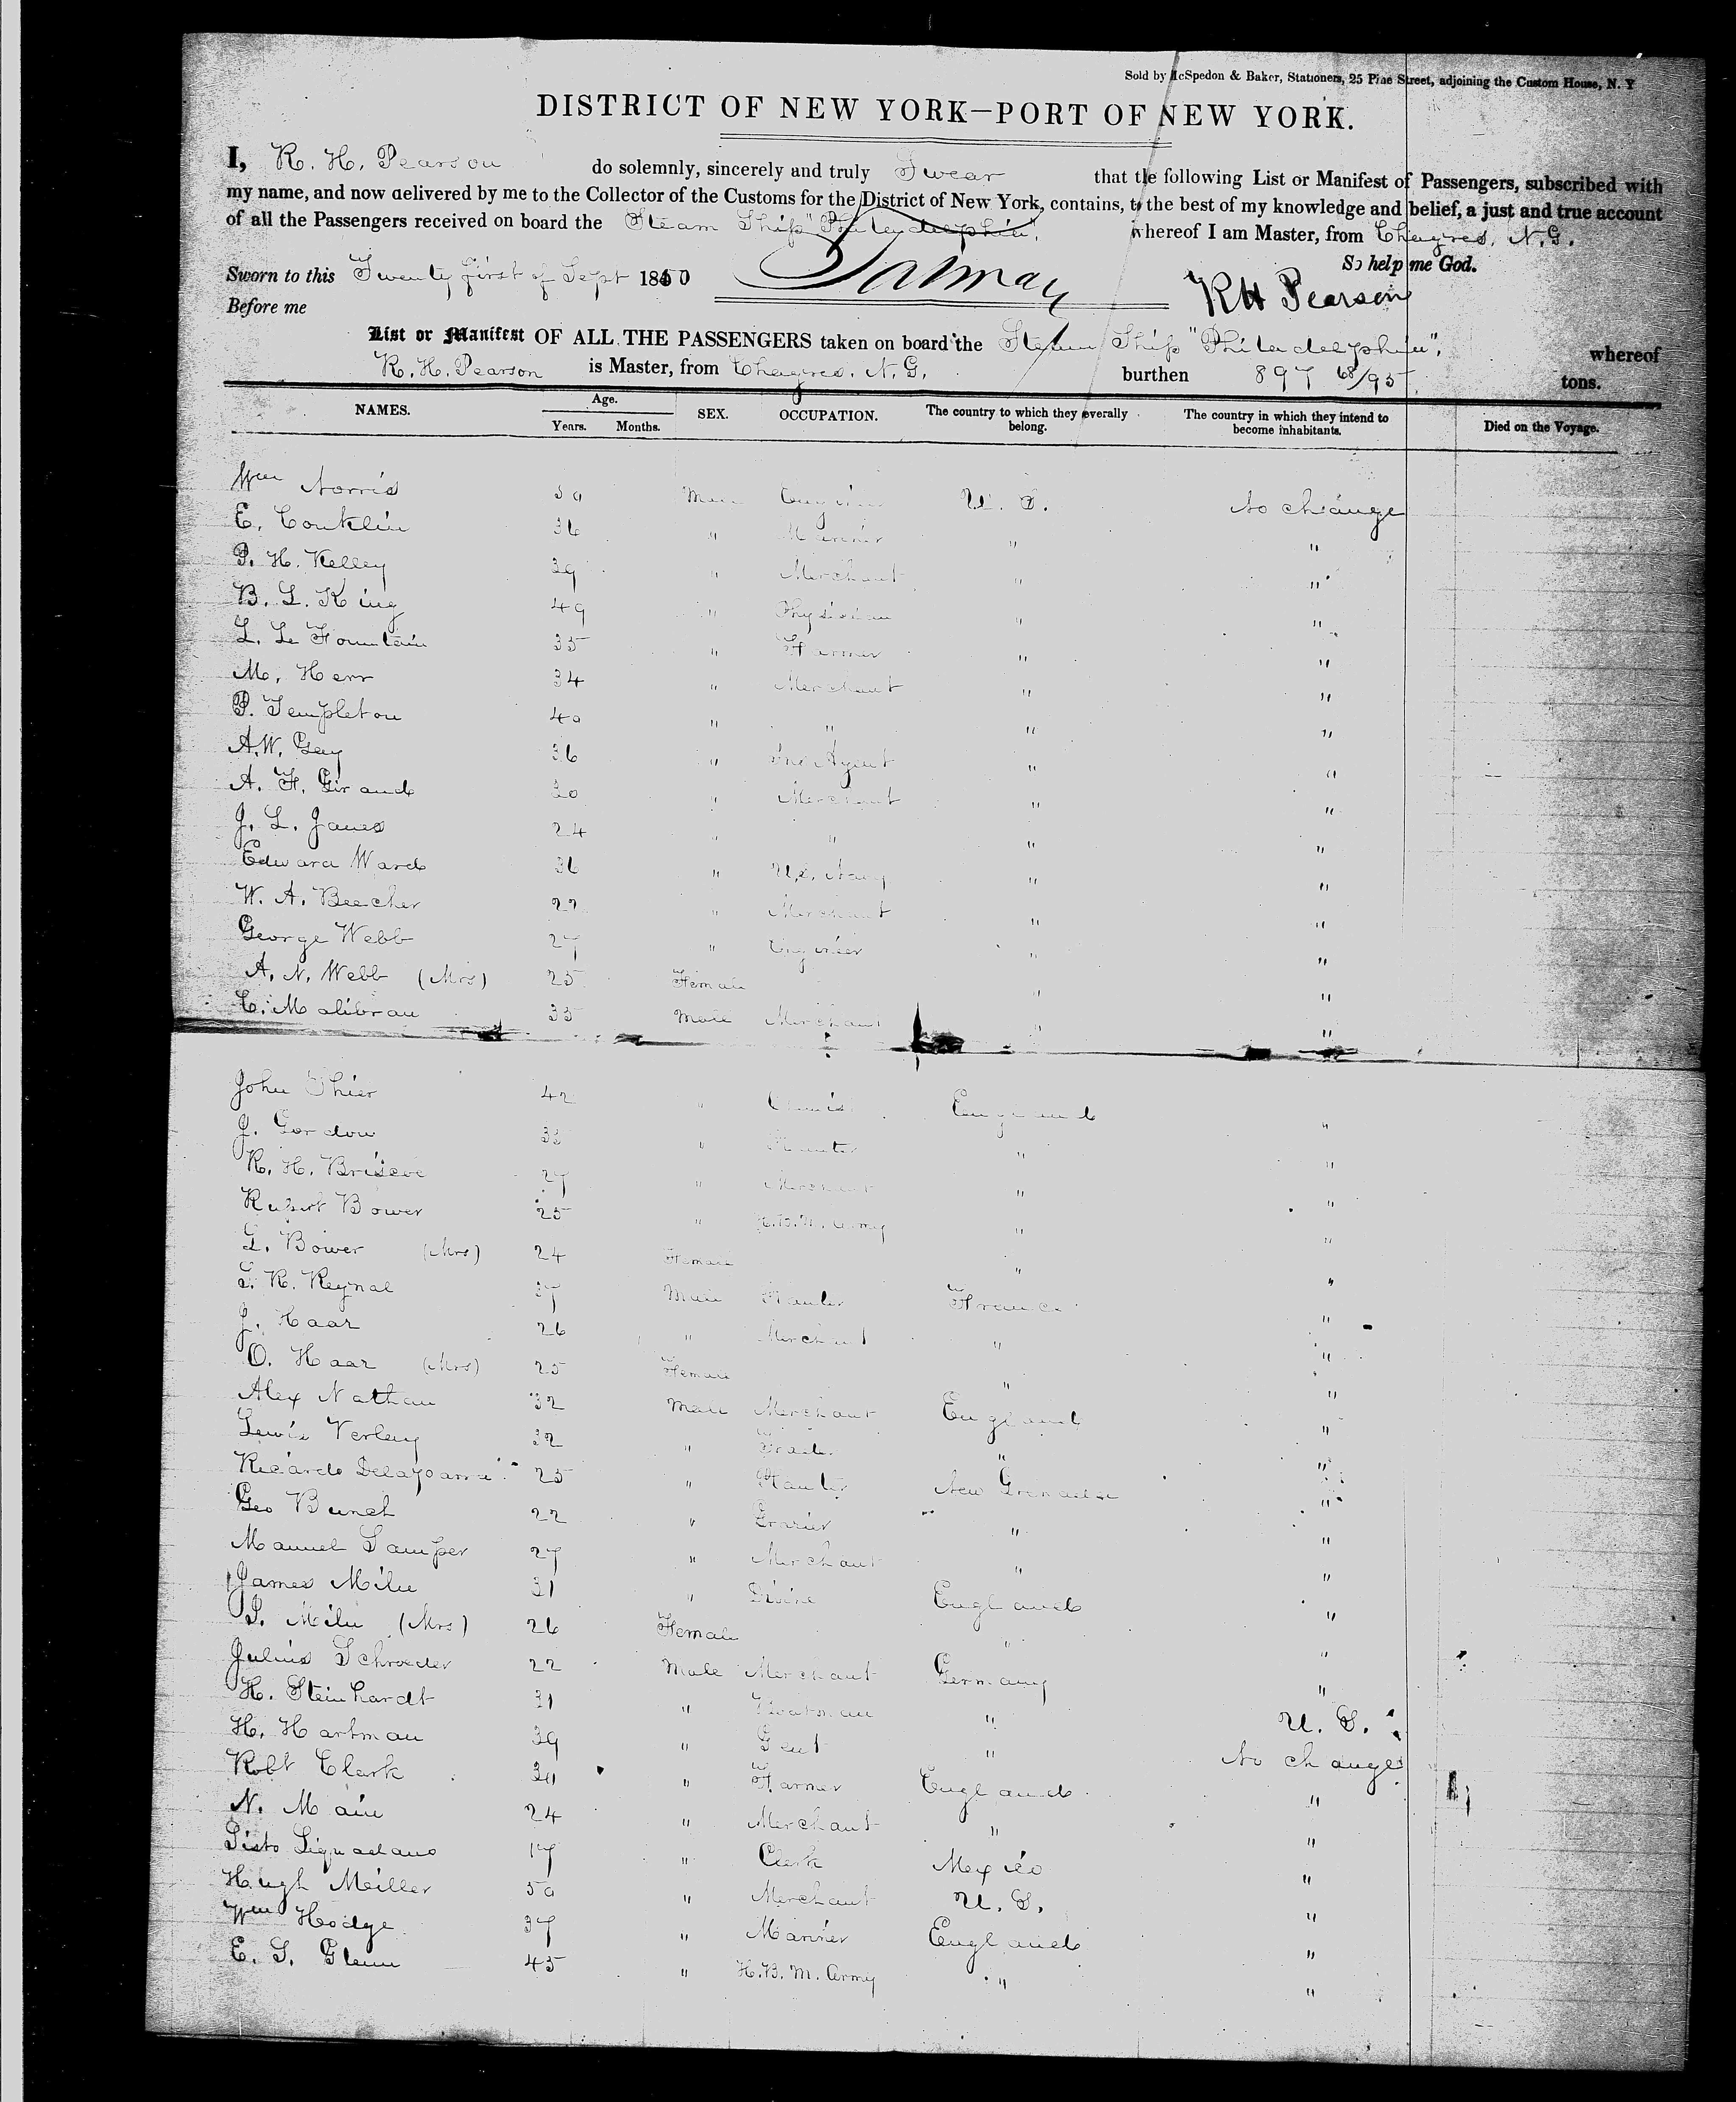 Sold by McSpedon & Baker, Stationers, 25 Pine Street, adjoining the Custom House, N. Y
DISTRICT OF NEW YORK—PORT OF NEW YORK.
I, R. H. Pearson do solemnly, sincerely and truly Swear that the following List or Manifest of Passengers, subscribed with
my name, and now delivered by me to the Collector of the Customs for the District of New York, contains, to the best of my knowledge and belief, a just and true account
of all the Passengers received on board the Steam Ship "Philadelphia", whereof I am Master, from Chagres, N.G.
So help me God.
Sworn to this Twenty first of Sept 1850
R H Pearson
Before me
List or Manifest OF ALL THE PASSENGERS taken on board the Steam Ship "Philadelphia", whereof
R. H. Pearson is Master, from Chagres. N. G. burthen 897 68/95 tons.
NAMES. Age. SEX. OCCUPATION. The country to which they severally belong. The country in which they intend to become inhabitants. Died on the Voyage.
Years. Months.
Wm Norris Male U. S. No change
E. Conklin 36 " " "
P. H. Kelley 39 " Merchant " "
B. L. King 49 " Physician " "
L. Le Fountain 35 " Farmer " "
M. Herr 34 " Merchant " "
P. Templeton 40 " " " "
A.W. Gay 36 " Agent " "
A. F. Giraud 30 " Merchant " "
J. L. Janes 24 " " " "
Edward Ward 36 " U.S. Navy " "
W. A. Beecher 22 " Merchant " "
George Webb 27 " Engineer " "
A. N. Webb (Mrs) 25 Female " "
C. Malibran 33 Male Merchant " "
John Shier 42 " England "
J. Gordon " " "
R. H. Briscoe 27 " Merchant " "
Robert Bower 25 " H.B.M. Army " "
L. Bower (Mrs) 24 Female " "
L. R. Reynal 37 Male Planter France "
J. Haar 26 " Merchant " "
O. Haar (Mrs) 25 Female " "
Alex Nathan 32 Male Merchant England "
Lewis Verley 32 " " "
Ricardo 25 " Planter New Grenada "
Geo Bunch 22 " Grazier " "
Manuel Samper 27 " Merchant " "
James Milne 31 " Divine England "
S. Milne (Mrs) 26 Female " "
Julius Schroeder 22 Male Merchant Germany "
H. Steinhardt 31 " Boatman " U. S.
H. Hartman 39 " Gent " No change
Robt Clark " Farmer England "
N. Main 24 " Merchant " "
Sisto 17 " Clerk Mexico "
Hugh Meiller 50 " Merchant U. S. "
Wm Hodge 37 " Mariner England "
E. S. Glenn 45 " H.B.M. Army " "